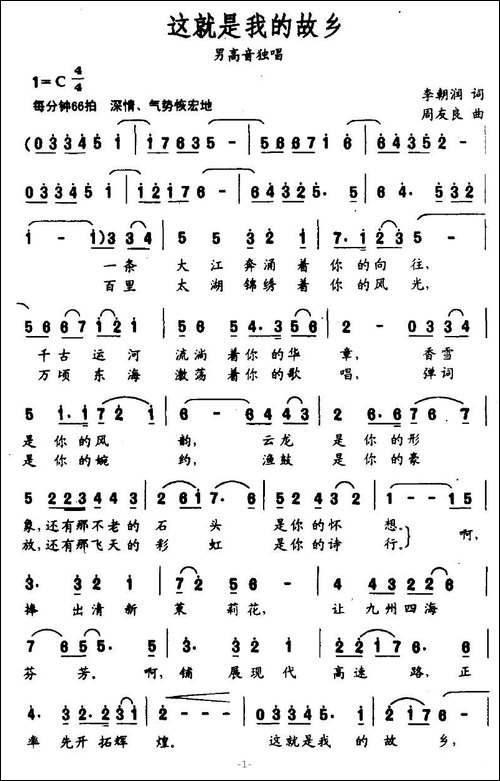 这就是我的故乡
男高音独唱
1=C 4/4
每分钟66拍 深情、气势恢宏地
李朝润 词
周友良 曲
(0 3 3 4 5 1 | 1 7 6 3 5 - | 5 6 6 7 1 6 | 6 4 3 5 2 -
0 3 3 4 5 1 | 1 2 1 7 6 - | 6 4 3 2 5. 5 | 6 4. 5 3 2
1 - 1) 3 3 4 | 5 5 3 2 1 | 7. 1 2 3 5 -
一条 大江奔涌着你的向往,
百里 太湖锦绣着你的风光,
5 6 6 7 1 2 1 | 5 6 5 4. 3 5 6 | 2 - 0 3 3 4
千古运河 流淌着你的华章, 香雪
万顷东海 激荡着你的歌唱, 弹词
5 1. 1 7 2 1 | 6 - 6 4 4 3 | 2 6. 6 7 6 7
是你的风韵, 云龙是你的形
是你的婉约, 渔鼓是你的豪
5 2 2 3 4 4 3 | 2 6 1 7. 6 | 5 6 5 3 5 2 | 1 - - 1 5
象,还有那不老的石头是你的怀想。 啊,
放,还有那飞天的彩虹是你的诗行。
3. 3 2 1 2 | 7 2 5 6 - | 4. 3 2 2 4 6
捧出清新茉莉花, 让九州四海
7 6 5 5. 5 | 3. 2 1 2 3 | 7 2 6 5. 5
芬芳。 啊,铺展现代高速路,正
4. 3 2. 2 3 1 | 2 - - - | 0 3 3 4 5 1 | 2 1 7 6 -
率先开拓辉煌。 这就是我的故乡,
-1-